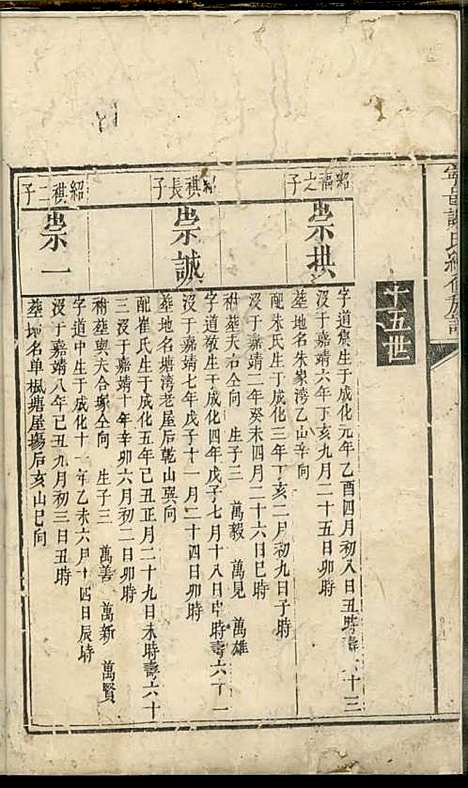 譚氏續修族譜
十五世
紹福之子
崇拱
字道㒷生于成化元年乙酉四月初八日丑時壽六十三
沒于嘉靖六年丁亥九月二十五日卯時
塟地名朱家湾乙山辛向
配朱氏生于成化三年丁亥二月初九日子時
沒于嘉靖二年癸未四月二十六日巳時
祔塟夫右仝向 生子三 萬毅 萬見 萬雄
紹祺長子
崇誠
字道敬生于成化四年戊子七月十八日申時壽六十一
沒于嘉靖七年戊子十一月二十四日卯時
塟地名塘湾老屋后乾山巽向
配崔氏生于成化五年己丑正月二十九日未時壽六十
三沒于嘉靖十年辛卯六月初二日卯時
祔塟與夫合塚仝向 生子三 萬善 萬新 萬賢
紹祺二子
崇一
字道中生于成化十一年乙未六月十四日辰時
沒于嘉靖八年己丑九月初三日丑時
塟地名单楓塘屋塲后亥山巳向